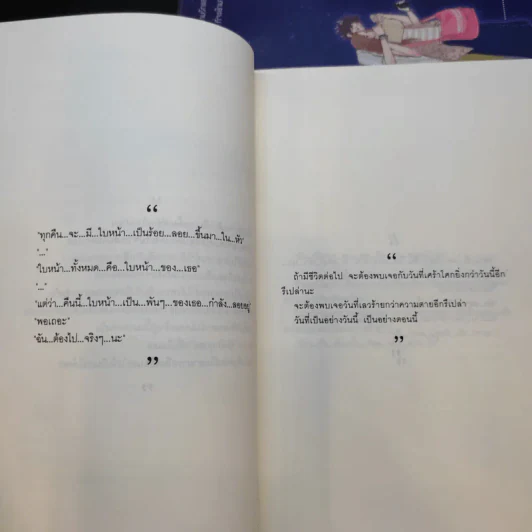 “
"ทุกคืน...จะ...มี...ใบหน้า...เป็นร้อย...ลอย...ขึ้นมา...ใน...หัว"
"..."
"ใบหน้า...ทั้งหมด...คือ...ใบหน้า...ของ...เธอ"
"..."
"แต่ว่า...คืนนี้...ใบหน้า...เป็น...พันๆ...ของเธอ...กำลัง...ลอยอยู่"
"พอเถอะ"
"ฉัน...ต้องไป...จริงๆ...นะ"
”
“
ถ้ามีชีวิตต่อไป จะต้องพบเจอกับวันที่เศร้าโศกยิ่งกว่าวันนี้อีก
รึเปล่านะ
จะต้องพบเจอวันที่เลวร้ายกว่าความตายอีกรึเปล่า
วันที่เป็นอย่างวันนี้ เป็นอย่างตอนนี้
”